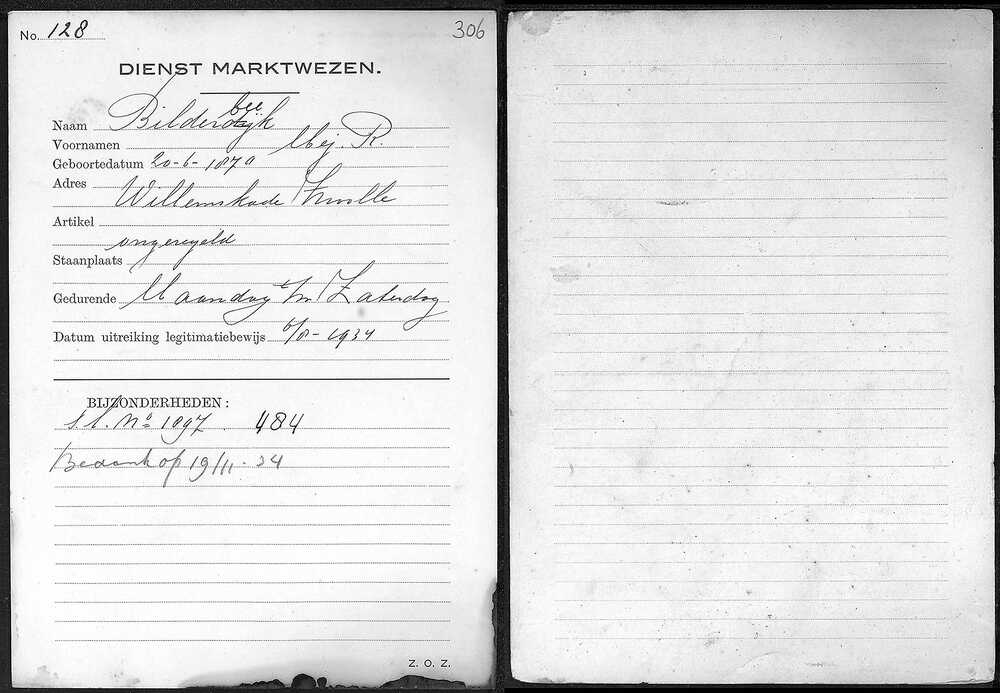 No. 128
306
DIENST MARKTWEZEN.
bee
Naam Bilderdijk
Voornamen Mej. R.
Geboortedatum 20-6-1870
Adres
Willemskade Zwolle
Artikel
ongeregeld
Staanplaats
Gedurende Maandag t/m Zaterdag
Datum uitreiking legitimatiebewijs 6/8-1934
BIJZONDERHEDEN:
s.l. No 1097. 484
Bedankt op 19/11-34
Z. O. Z.